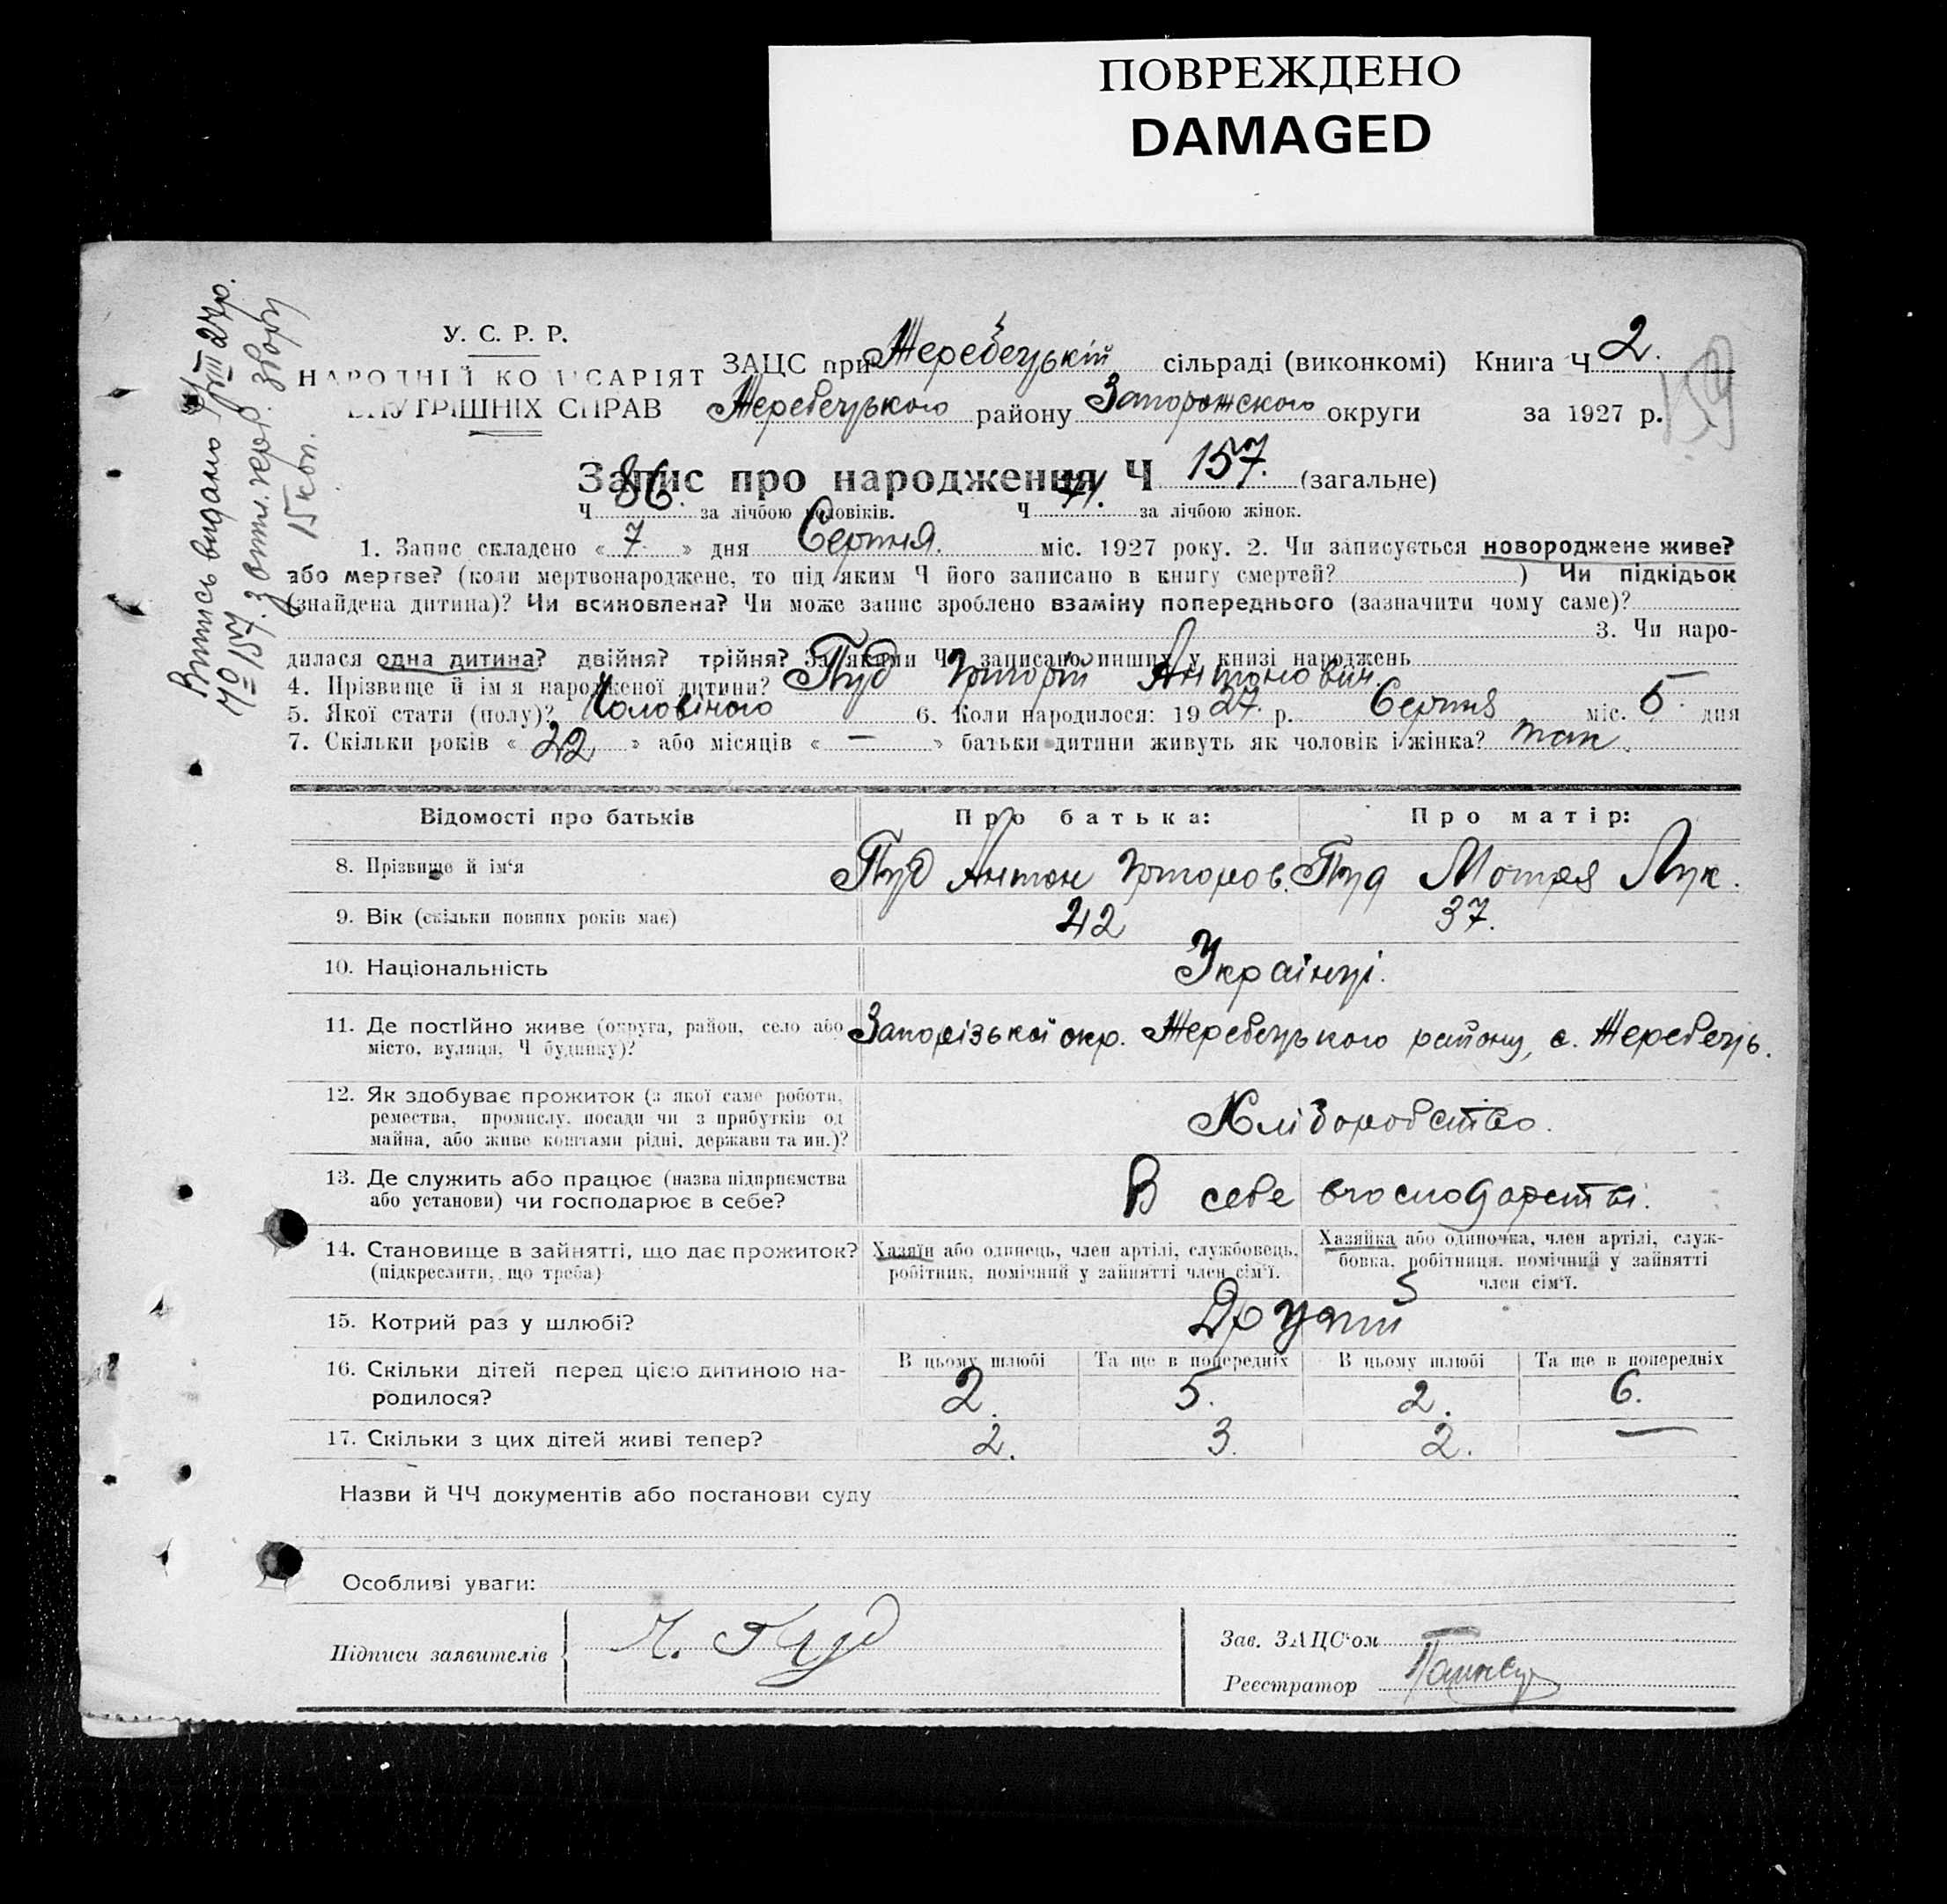 ПОВРЕЖДЕНО
DAMAGED
У. С. Р. Р.
НАРОДНІЙ КОМІСАРІЯТ
ВНУТРІШНІХ СПРАВ
ЗАЦС при Жеребецькій сільраді (виконкомі) Книга Ч 2.
Жеребецького району Запорожского округи за 1927 р.
159
Випись видано
№ 157. з опл. герб. збору
15 коп.
Запис про народження Ч 157. (загальне)
Ч 86. за лічбою чоловіків. Ч 71. за лічбою жінок.
1. Запис складено « 7 » дня Серпня. міс. 1927 року. 2. Чи записується новороджене живе?
або мертве? (коли мертвонароджене, то під яким Ч його записано в книгу смертей? ) Чи підкідьок
(знайдена дитина)? Чи всиновлена? Чи може запис зроблено взаміну попереднього (зазначити чому саме)?
3. Чи наро-
дилася одна дитина? двійня? трійня? За якими Ч записано инших у книзі народжень
4. Прізвище й ім я народженої дитини? Пуд Григорій Антонович.
5. Якої стати (полу)? Чоловічого 6. Коли народилося: 1927. р. Серпня міс. 5. дня
7. Скільки років « » або місяців « — » батьки дитини живуть як чоловік і жінка? так.
Відомості про батьків Про батька: Про матір:
8. Прізвище й ім'я Пуд Антон Григоров. Пуд Мотря Лук.
9. Вік (скільки повних років має) 42 37.
10. Національність Українці.
11. Де постійно живе (округа, район, село або
місто, вулиця, Ч будинку)? Запорізької окр. Жеребецького району, с. Жеребець.
12. Як здобуває прожиток (з якої саме роботи,
ремества, промислу, посади чи з прибутків од
майна, або живе коштами рідні, держави та ин.)? Хліборобство.
13. Де служить або працює (назва підприємства
або установи) чи господарює в себе? В себе вгосподарстві.
14. Становище в зайнятті, що дає прожиток?
(підкреслити, що треба)
Хазяїн або одинець, член артілі, службовець,
робітник, помічний у зайнятті член сім'ї.
Хазяйка або одиночка, член артілі, служ-
бовка, робітниця, помічний у зайнятті
член сім'ї.
15. Котрий раз у шлюбі? Другий
16. Скільки дітей перед цією дитиною на-
родилося?
В цьому шлюбі Та ще в попередніх В цьому шлюбі Та ще в попередніх
2. 5. 2. 6.
17. Скільки з цих дітей живі тепер? 2. 3. 2. —
Назви й ЧЧ документів або постанови суду
Особливі уваги:
Підписи заявителів Пуд
Зав. ЗАЦС'ом
Реєстратор